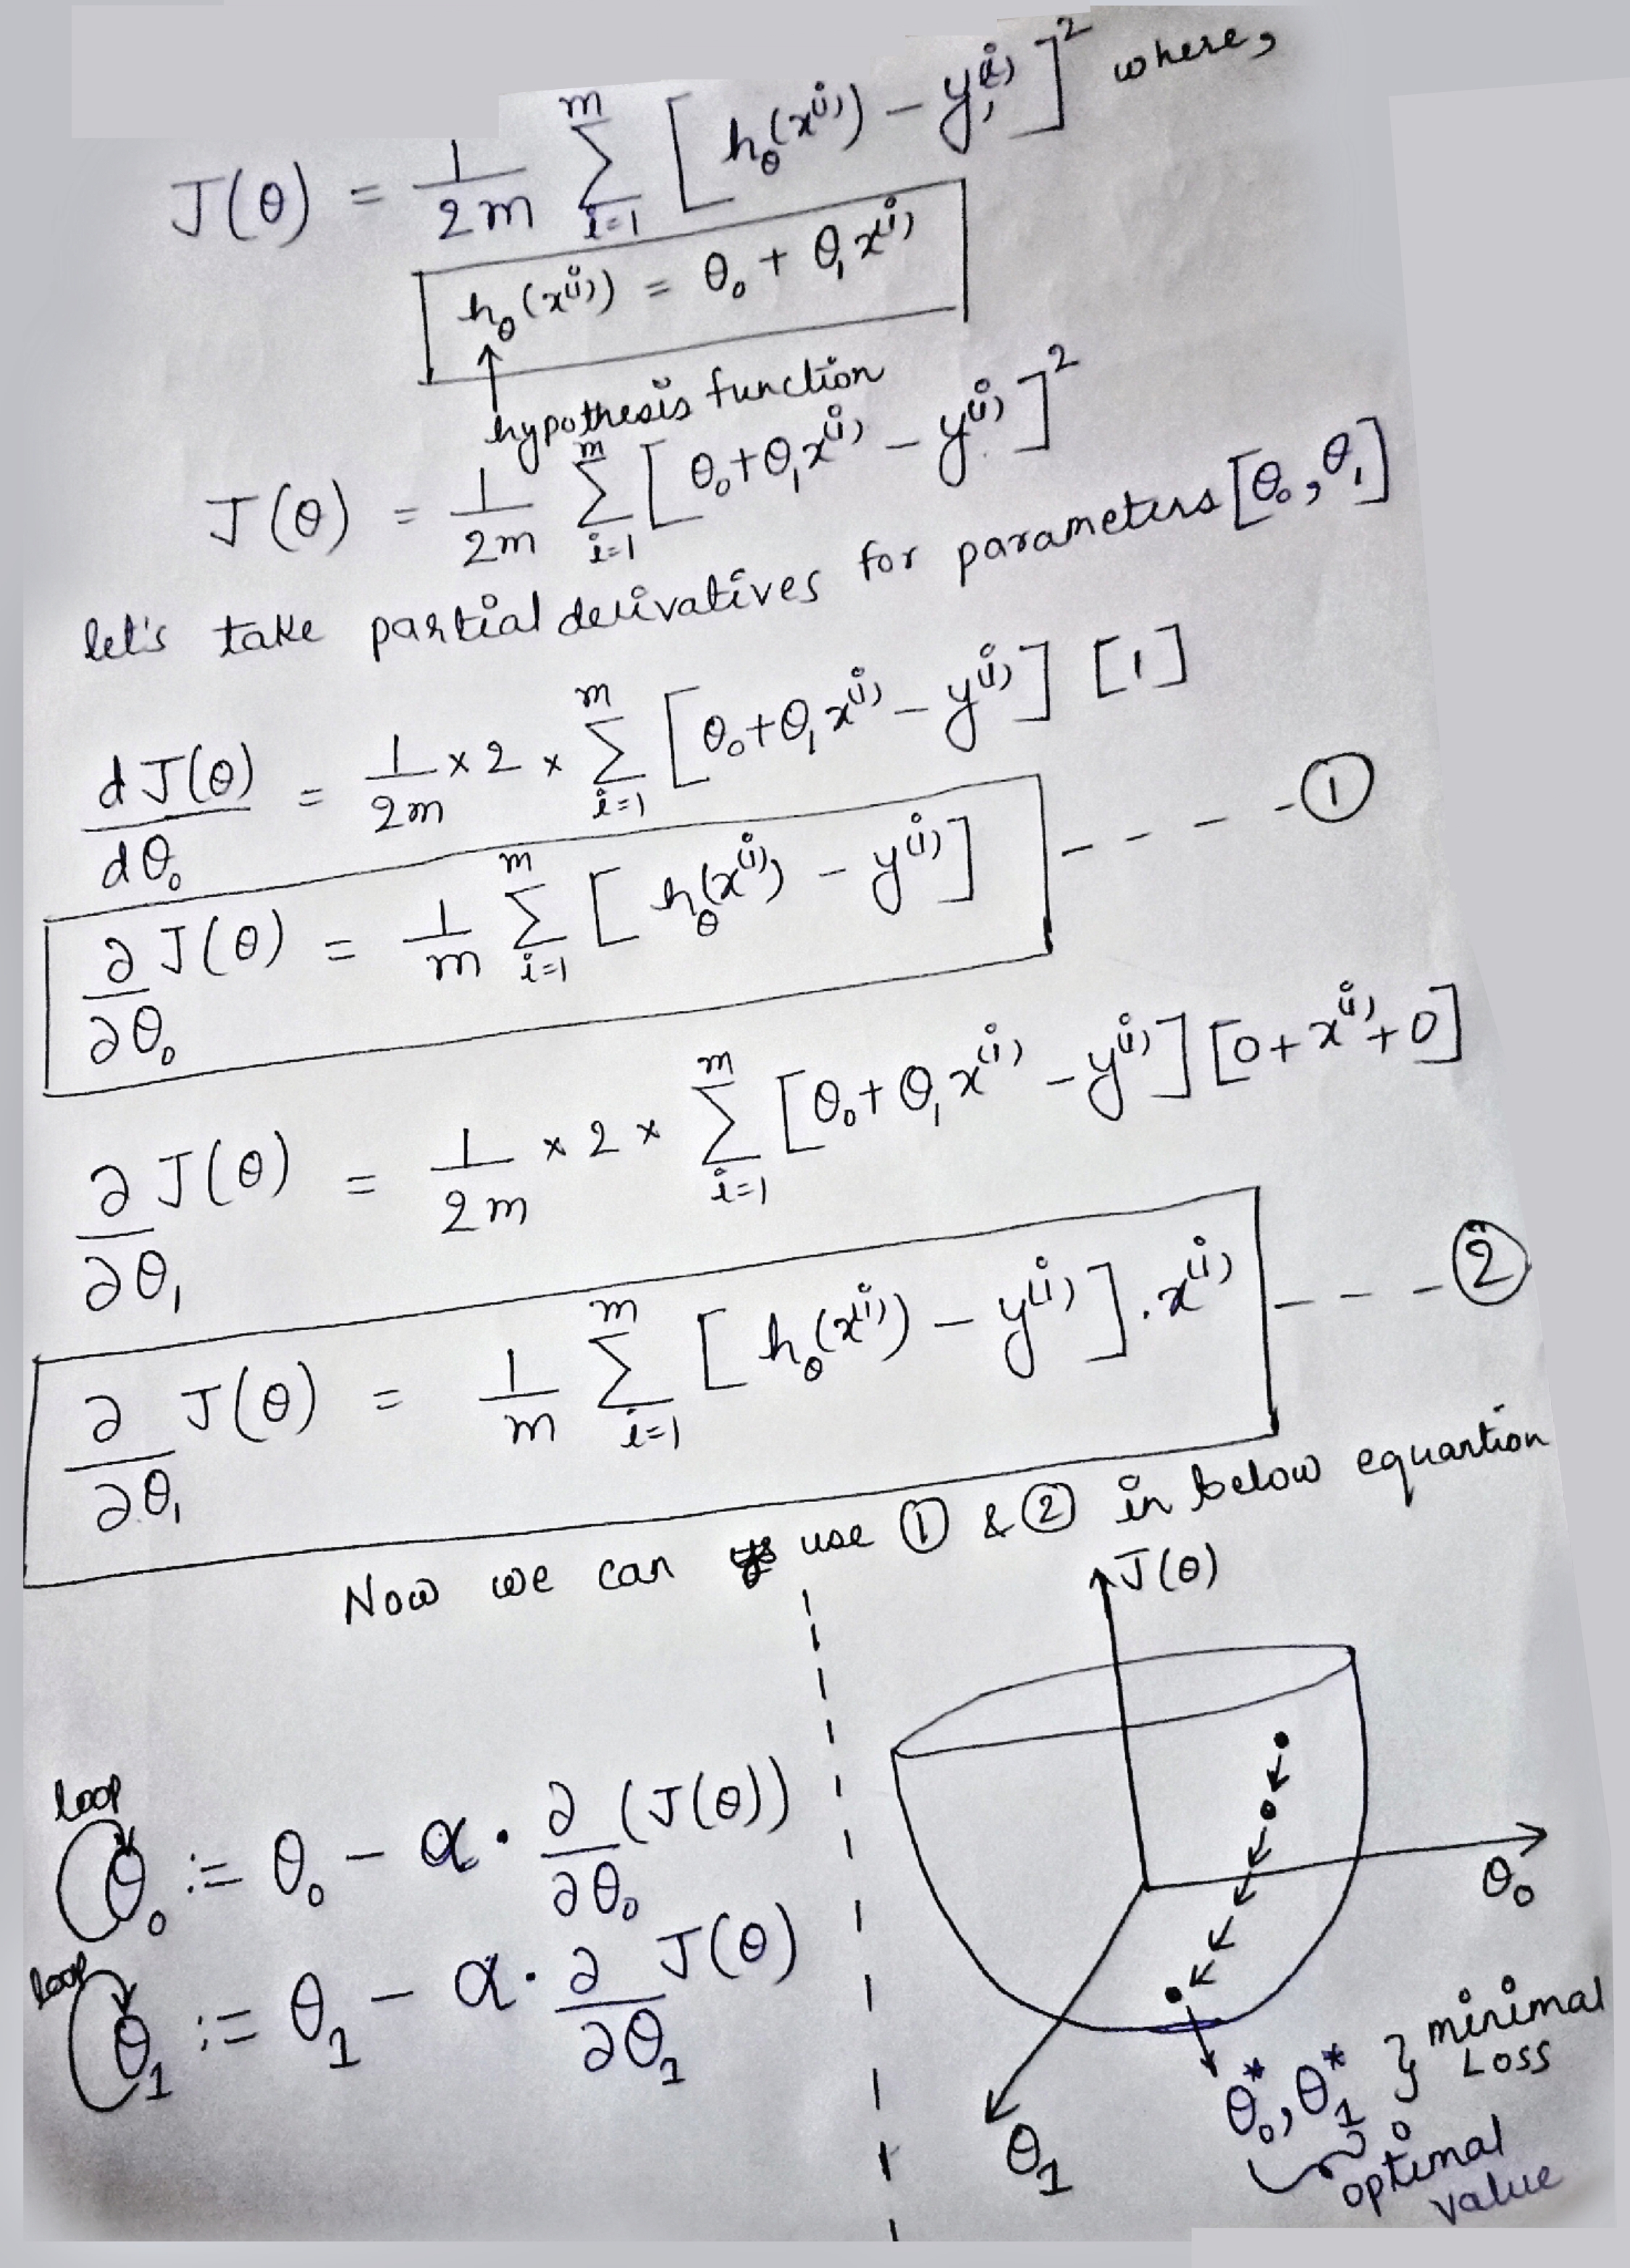 J(θ) = 1/2m Σ_{i=1}^{m} [h_θ(x^{(i)}) - y^{(i)}]² where,
h_θ(x^{(i)}) = θ₀ + θ₁x^{(i)}
hypothesis function
J(θ) = 1/2m Σ_{i=1}^{m} [θ₀+θ₁x^{(i)} - y^{(i)}]²
let's take partial derivatives for parameters [θ₀, θ₁]
dJ(θ)/dθ₀ = 1/2m × 2 × Σ_{i=1}^{m} [θ₀+θ₁x^{(i)} - y^{(i)}] [1]
∂/∂θ₀ J(θ) = 1/m Σ_{i=1}^{m} [h_θ(x^{(i)}) - y^{(i)}] ---- ①
∂/∂θ₁ J(θ) = 1/2m × 2 × Σ_{i=1}^{m} [θ₀+θ₁x^{(i)} - y^{(i)}] [0+x^{(i)}+0]
∂/∂θ₁ J(θ) = 1/m Σ_{i=1}^{m} [h_θ(x^{(i)}) - y^{(i)}].x^{(i)} --- ②
Now we can use ① & ② in below equantion
loop
θ₀ := θ₀ - α · ∂/∂θ₀ (J(θ))
loop
θ₁ := θ₁ - α · ∂/∂θ₁ J(θ)
J(θ)
θ₀
θ₁
θ₀*, θ₁* } minimal
Loss
optimal
value